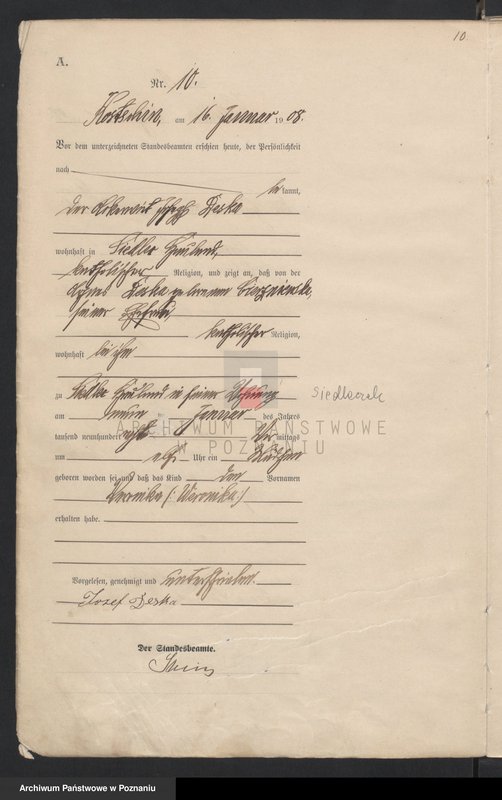 10.
A.
Nr. 10.
Kostschin, am 16. Januar 1908.
Vor dem unterzeichneten Standesbeamten erschien heute, der Persönlichkeit
nach
bekannt,
der Joseph Deska
wohnhaft in Siedlec Hauland,
katholischer Religion, und zeigt an, daß von der
Agnes Deska geborenen
seiner Ehefrau,
katholischer Religion,
wohnhaft bei ihm
zu Siedlec Hauland in seiner Wohnung
siedleczek
am neun ten Januar des Jahres
tausend neunhundert acht Vor mittags
um elf Uhr ein Mädchen
geboren worden sei und daß das Kind den Vornamen
Weronika (: Veronika :)
erhalten habe.
ARCHIWUM PAŃSTWOWE
W POZNANIU
Vorgelesen, genehmigt und unterschrieben.
Jozef Deska
Der Standesbeamte.
Archiwum Państwowe w Poznaniu